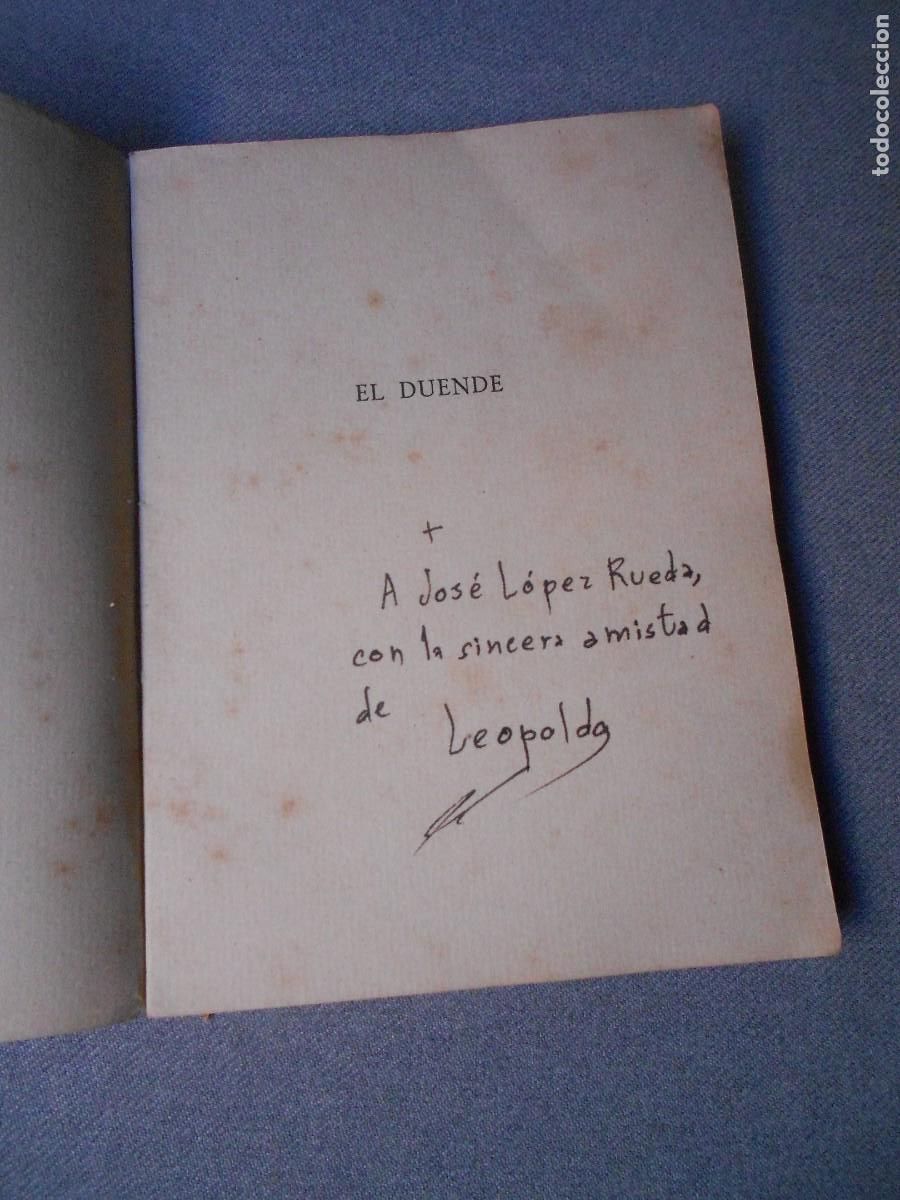 EL DUENDE
+
A José López Rueda,
con la sincera amistad
de
Leopoldo
todocoleccion